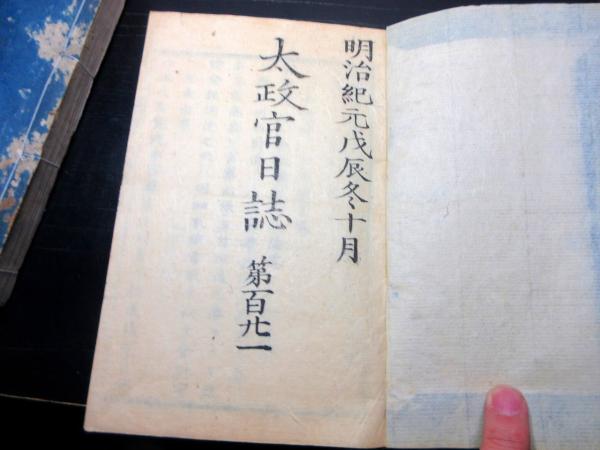 明治紀元戊辰冬十月
太政官日誌 第百廿一